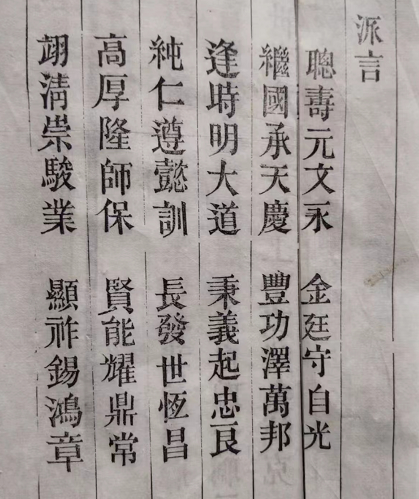 派言
聰壽元文永　金廷守自光
繼國承天慶　豐功澤萬邦
逢時明大道　秉義起忠良
純仁遵懿訓　長發世恆昌
高厚隆師保　賢能耀鼎常
翊清崇駿業　顯祚錫鴻章